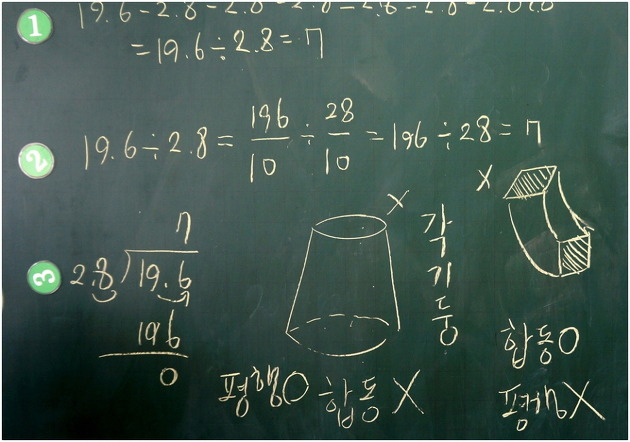 1
19.6-2.8-2.8-2.8-2.8-2.8-2.8-2.8=0
=19.6÷2.8=7
2
19.6÷2.8=196/10÷28/10=196÷28=7
3
7
2.8)19.6
196
0
X
각기둥
평행O 합동X
X
합동O
평행X